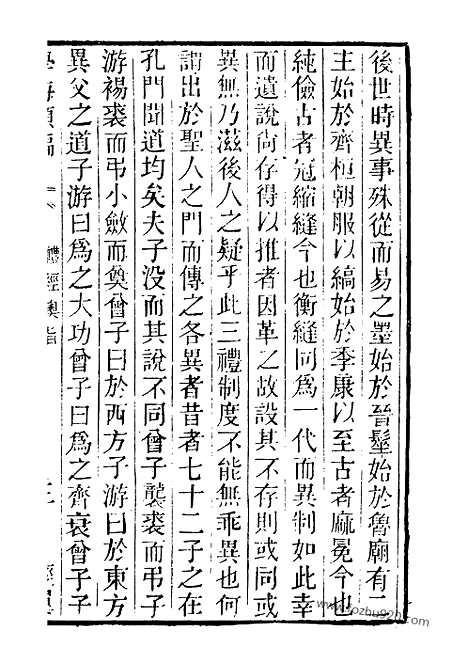 後世時異事殊從而易之墨始於晉髽始於魯廟有二
主始於齊桓朝服以縞始於季康以至古者麻冕今也
純儉古者冠縮縫今也衡縫同為一代而異制如此幸
而遺說尚存得以推者因革之故設其不存則或同或
異無乃滋後人之疑乎此三禮制度不能無乖異也何
謂出於聖人之門而傳之各異者昔者七十二子之在
孔門聞道均矣夫子没而其說不同曾子襲裘而弔子
游裼裘而弔小斂而奠曾子曰於西方子游曰於東方
異父之道子游曰為之大功曾子曰為之齊衰曾子子
禮經奧旨